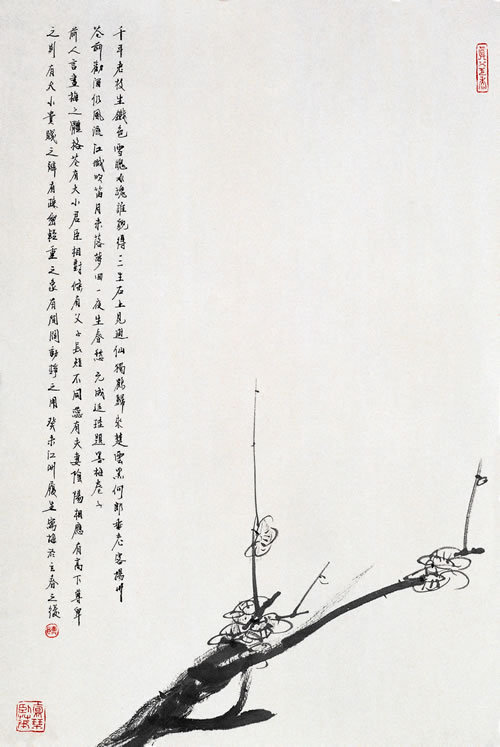 千年老枝生鐵色雪魄冰魂誰貌得三生石上見逋仙獨鶴歸來楚雲黑何郎垂老客揚州
花前勸酒仍風流江城吹笛月未落夢回一夜生春愁 元成廷珪題墨梅卷子
前人言畫梅之體格花有大小君臣相對條有父子長短不同蕊有夫妻陰陽相應有高下尊卑
之別有大小貴賤之辨有疏密輕重之象有間闊動靜之用癸未江州履生寫梅於立春之後